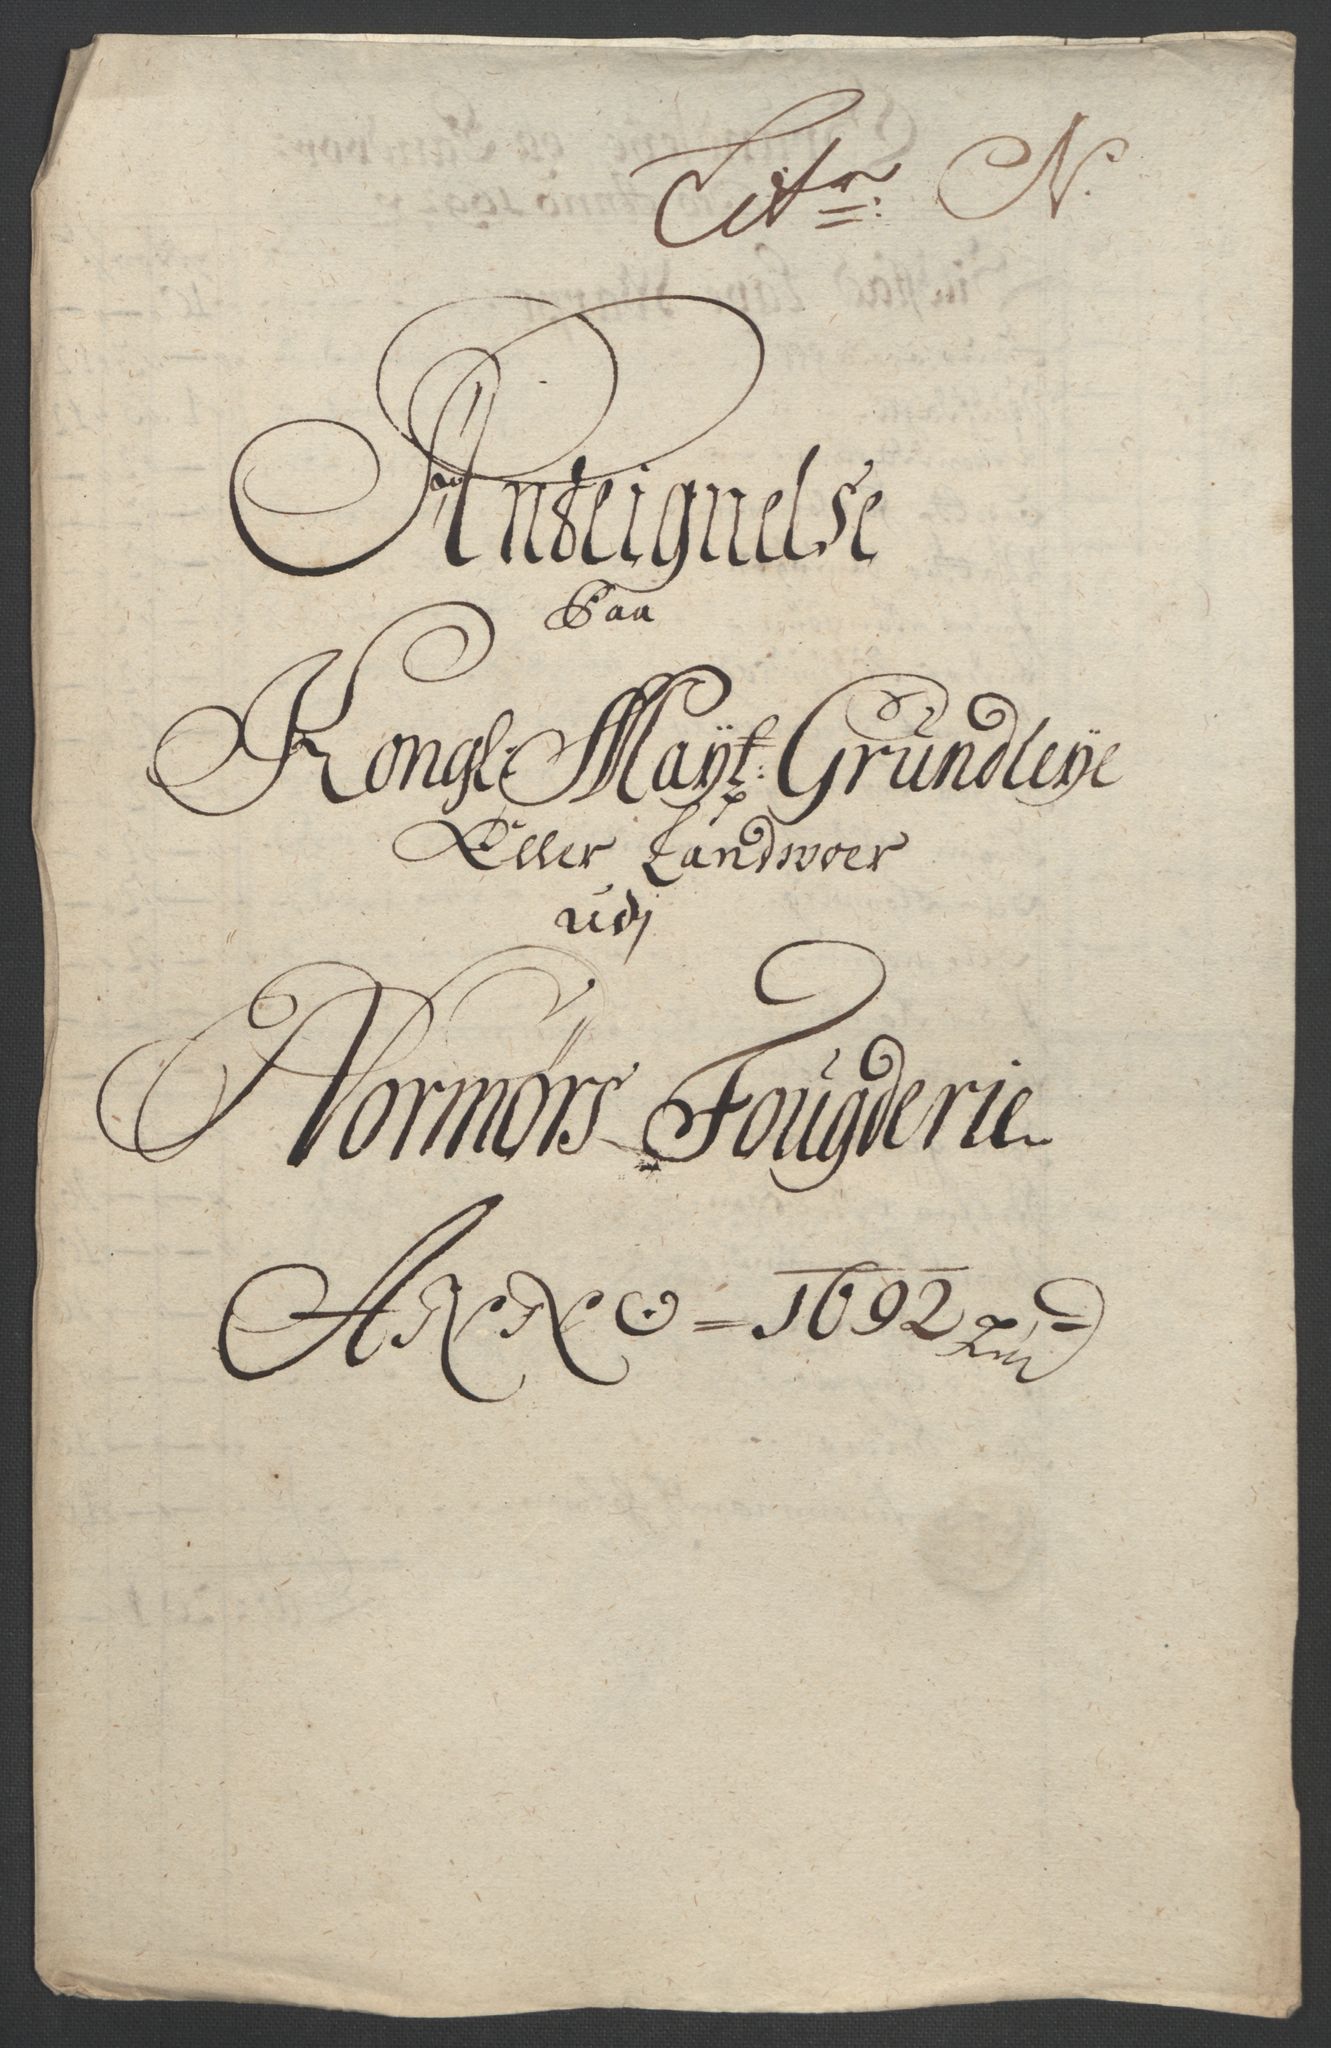 Litr: N.
Anteignelse
Paa
Kongl: Mayt: Grundleye
Eller Landwoer
udj
Normørs Fougderie
ANNO = 1692